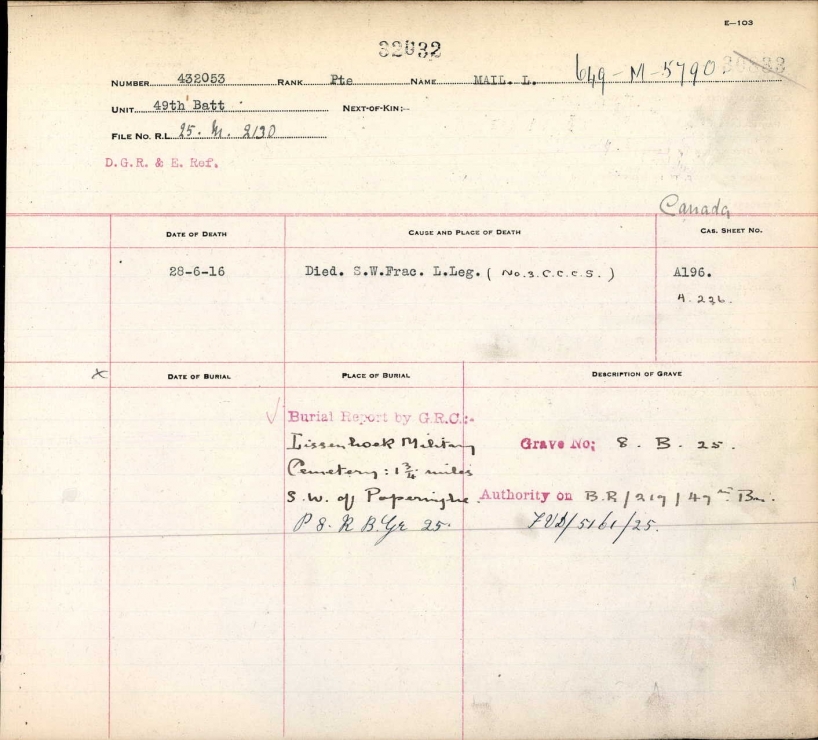 E—103
32032
NUMBER 432053 RANK Pte NAME MAIL. L. 649-M-5790
UNIT 49th Batt NEXT-OF-KIN:-
FILE No. R.L. 25. M. 2130
D.G.R. & E. Ref.
Canada
DATE OF DEATH CAUSE AND PLACE OF DEATH CAS. SHEET NO.
28-6-16 Died. S.W.Frac. L.Leg. ( No.3.C.C.C.S. ) A196.
A.226.
x DATE OF BURIAL PLACE OF BURIAL DESCRIPTION OF GRAVE
Burial Report by G.R.C.:-
Lissenhoek Military Grave No; 8. B. 25.
Cemetery: 1¾ miles
S.W. of Poperinghe. Authority on B.R/219/47th Bn.
P 8. R B. Gr 25. /5161/25.